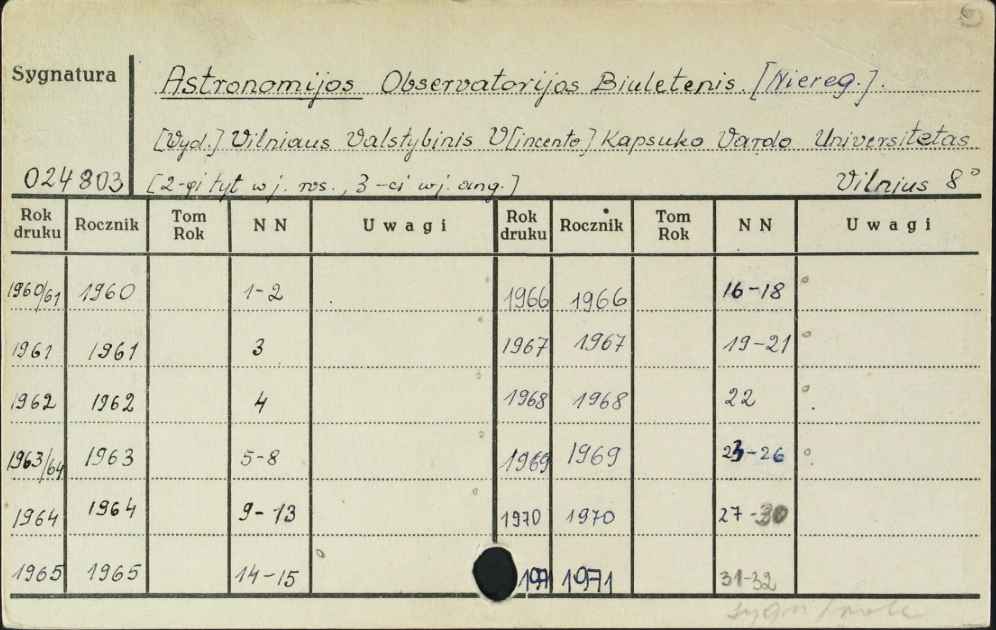 Sygnatura
Astronomijos Observatorijos Biuletenis. [Niereg.].
[Wyd.] Vilniaus Valstybinis V[incento] Kapsuko Vardo Universitetas
024803 [2-gi tyt w j. ros., 3-ci w j. ang.] Vilnius 8°
Rok druku Rocznik Tom Rok NN Uwagi Rok druku Rocznik Tom Rok NN Uwagi
1960/61 1960 1-2 1966 1966 16-18
1961 1961 3 1967 1967 19-21
1962 1962 4 1968 1968 22
1963/64 1963 5-8 1969 1969 23-26
1964 1964 9-13 1970 1970 27-30
1965 1965 14-15 1971 1971 31-32